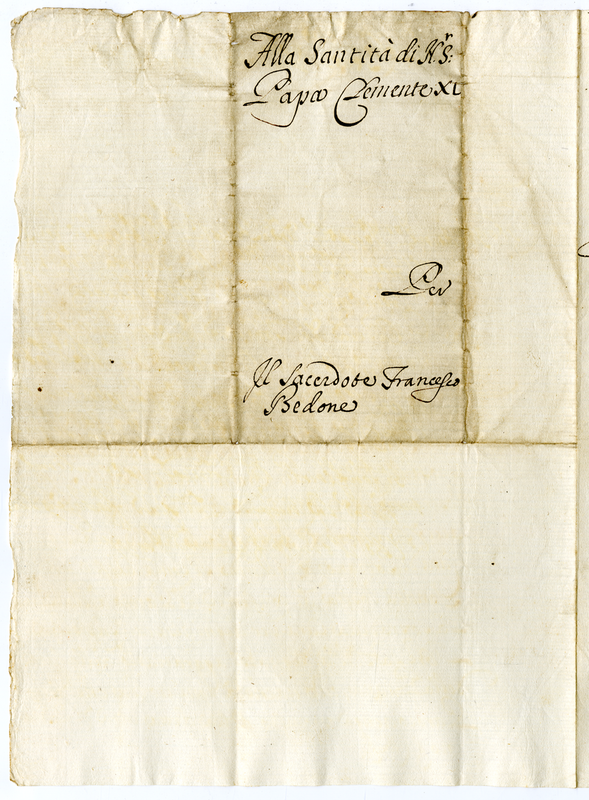 Alla Santità di N. Sr:
Papa Clemente XI
Per
Il Sacerdote Francesco
Bedone